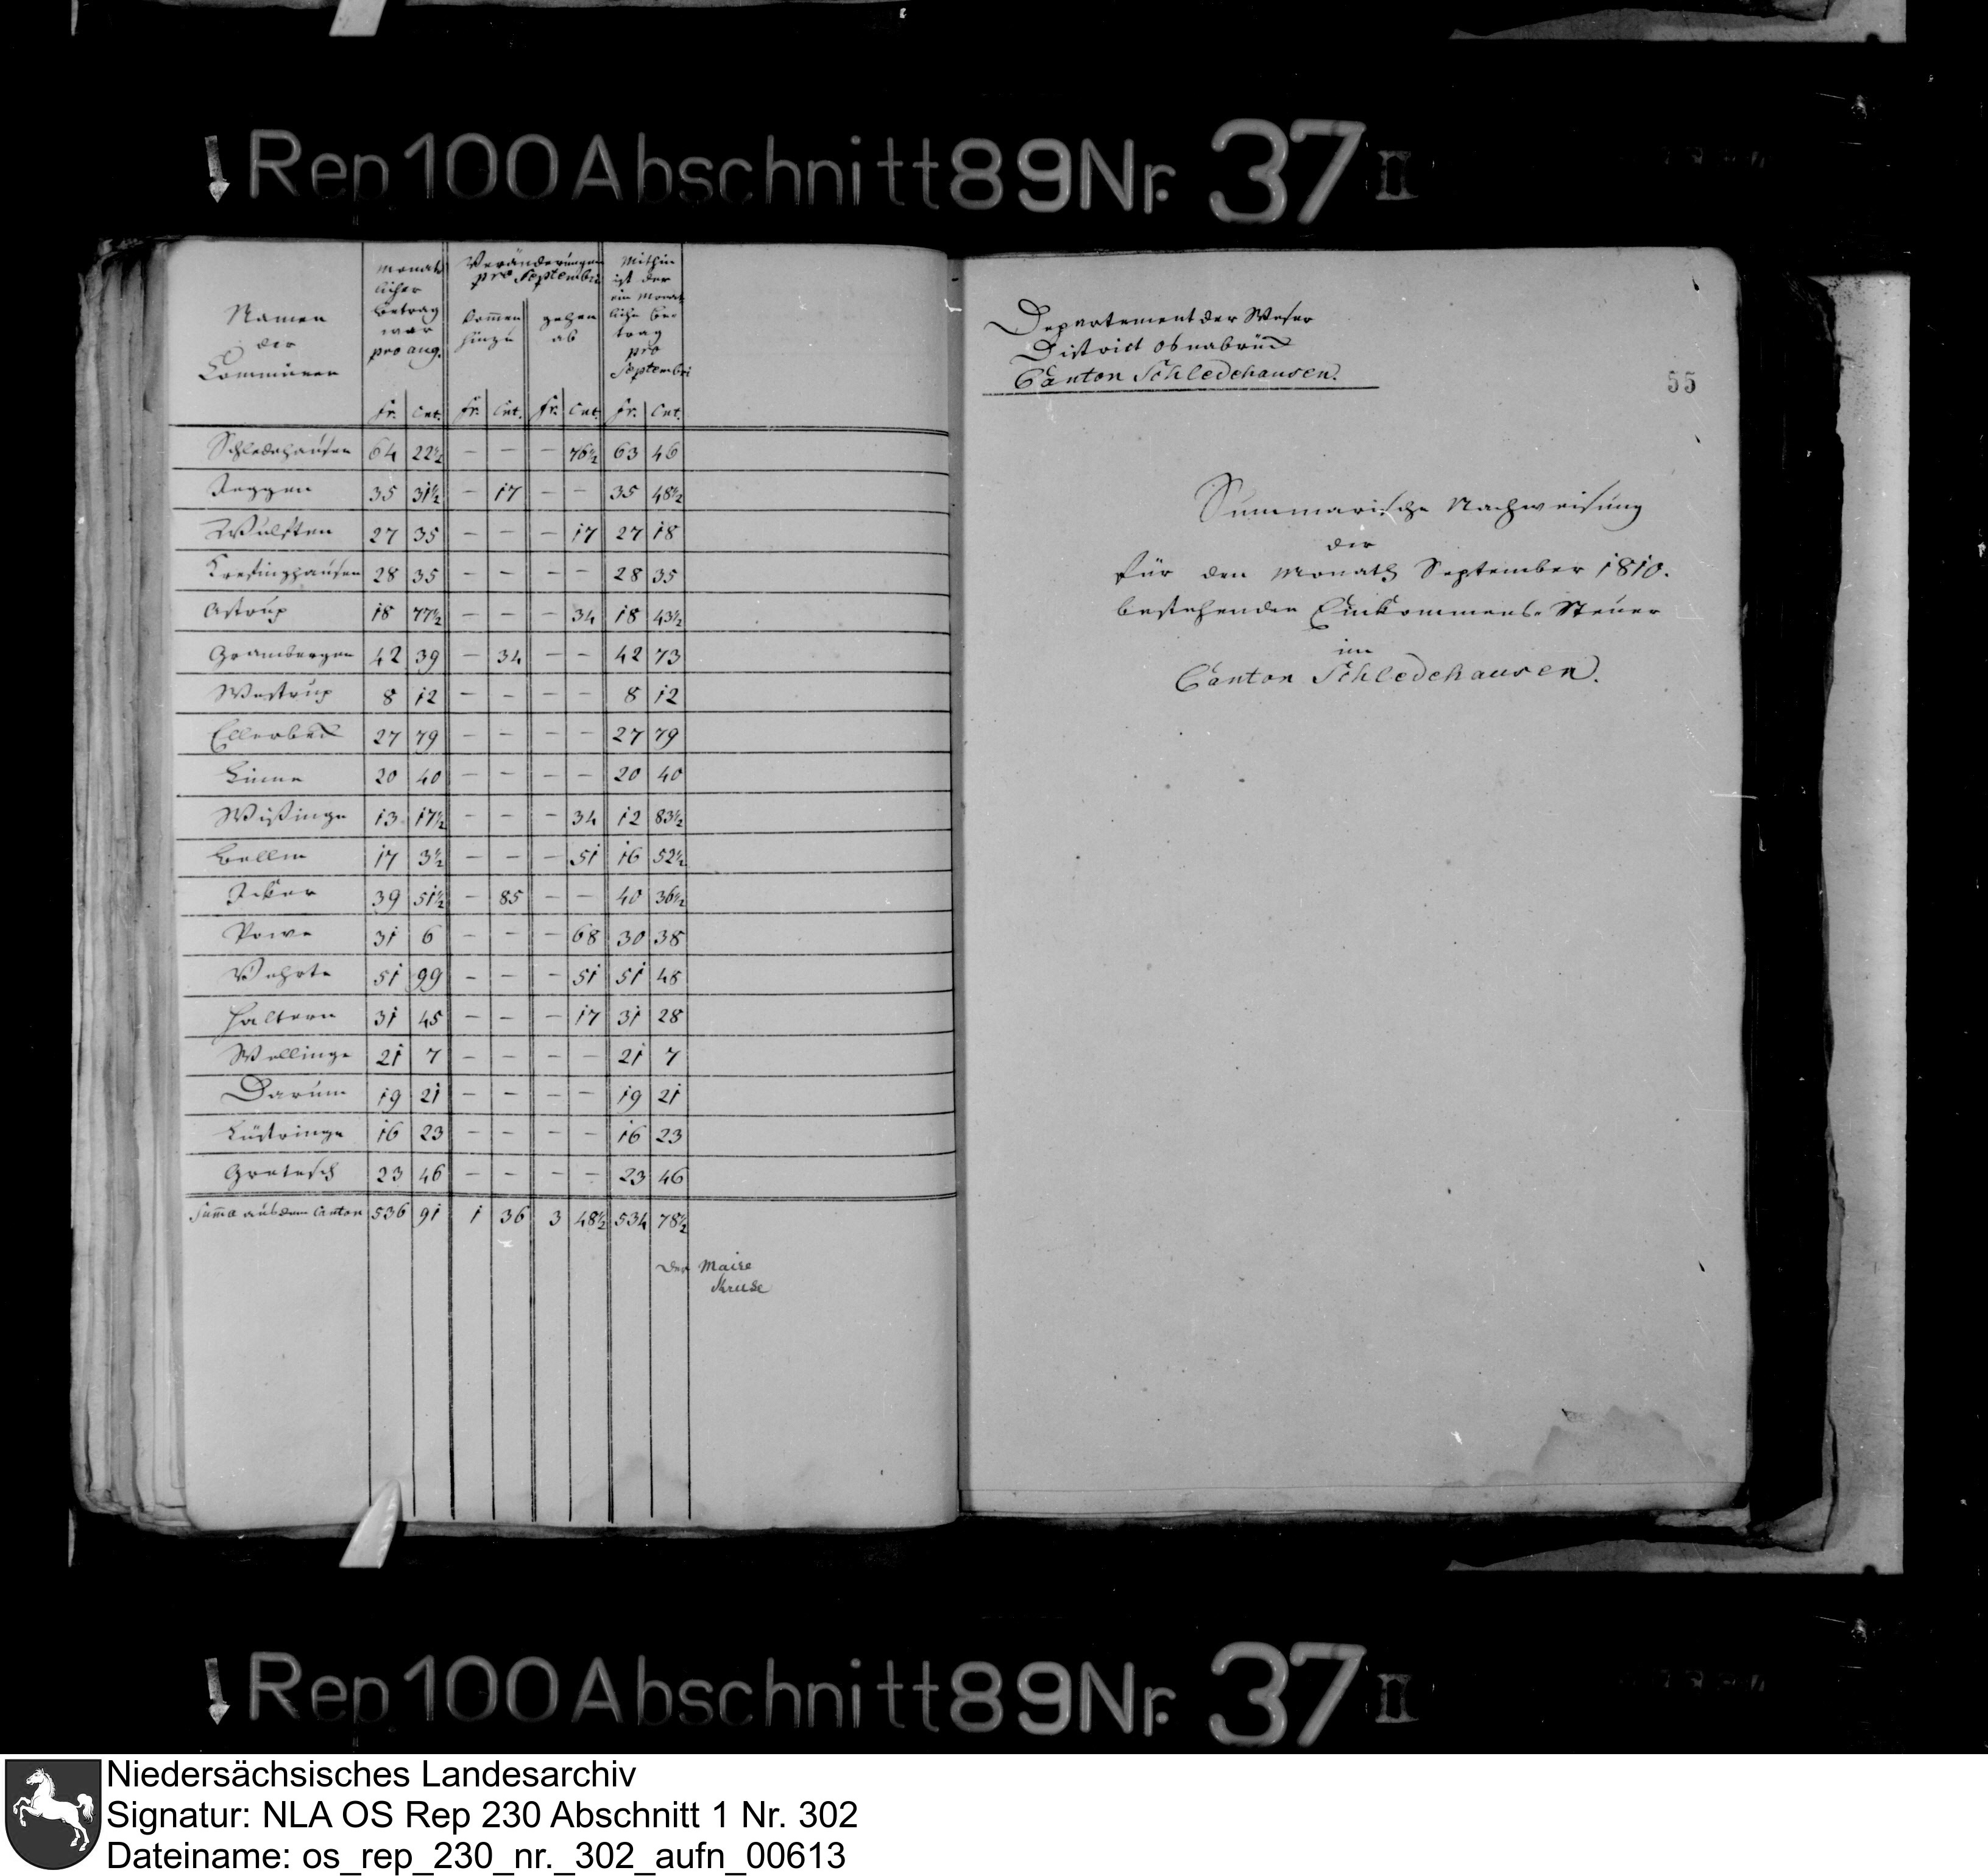 Rep 100 Abschnitt 89 Nr. 37 II
Namen
der
Communen
Monat
licher
Betrag
war
pro aug.
Veränderungen
pro Septembr
kom̅en
hinzu
gehen
ab
Mithin
ist der
ein Monat
liche Be
trag
pro
Septembr
fr. Cnt. fr. Cnt. fr. Cnt. fr. Cnt.
Schledehausen 64 22½ – – – 76½ 63 46
Jeggen 35 31½ – 17 – – 35 48½
Wulften 27 35 – – – 17 27 18
Krevinghausen 28 35 – – – – 28 35
Astrup 18 77½ – – – 34 18 43½
Grambergen 42 39 – 34 – – 42 73
Westrup 8 12 – – – – 8 12
Ellerbeck 27 79 – – – – 27 79
Linne 20 40 – – – – 20 40
Wißinge 13 17½ – – – 34 12 83½
Bellm 17 3½ – – – 51 16 52½
Icker 39 51½ – 85 – – 40 36½
Powe 31 6 – – – 68 30 38
Vehrte 51 99 – – – 51 51 48
Haltern 31 45 – – – 17 31 28
Wellinge 21 7 – – – – 21 7
Darum 19 21 – – – – 19 21
Lüstringe 16 23 – – – – 16 23
Gretesch 23 46 – – – – 23 46
Sum̅a aus dem Canton 536 91 1 36 3 48½ 534 78½
Der Maire
Kruse
Departement der Weser
District Osnabrück
Canton Schledehausen.
55
Summarische Nachweisung
der
für den Monath September 1810.
bestehenden Einkommens-Steuer
im
Canton Schledehausen.
Rep 100 Abschnitt 89 Nr. 37 II
Niedersächsisches Landesarchiv
Signatur: NLA OS Rep 230 Abschnitt 1 Nr. 302
Dateiname: os_rep_230_nr._302_aufn_00613